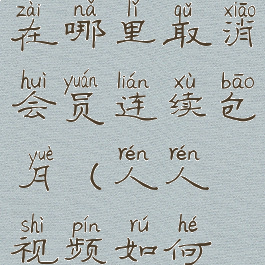 zài nǎ lǐ qǔ xiāo
在哪里取消
huì yuán lián xù bāo
会员连续包
yuè rén rén
月(人人
shì pín rú hé
视频如何